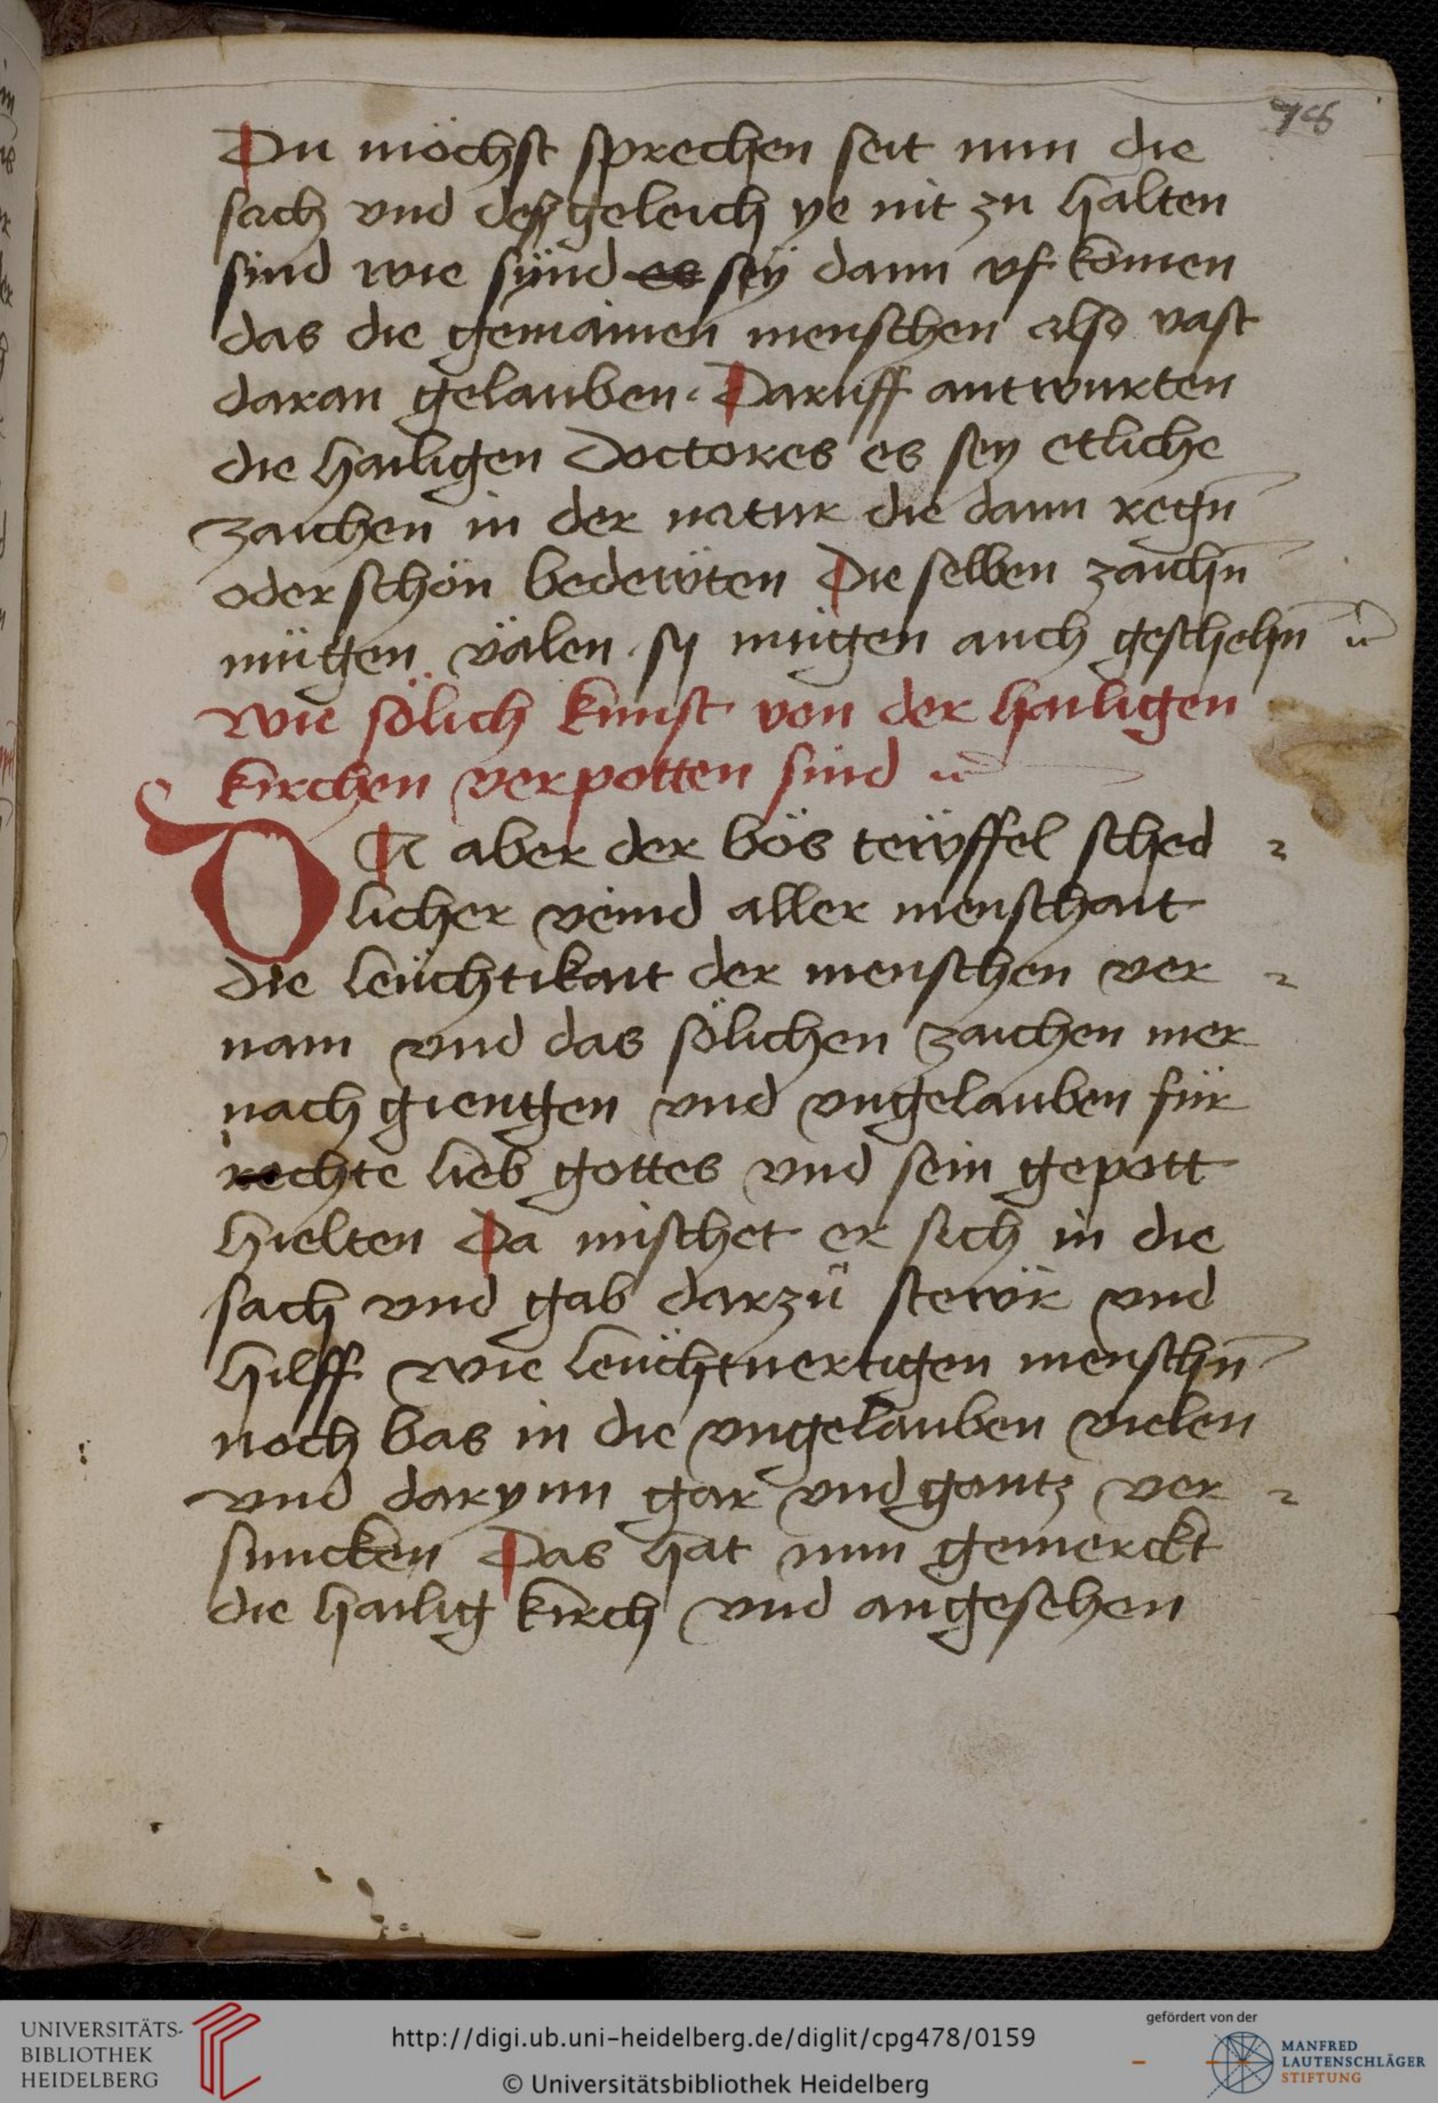 78
Du möchst sprechen seit nun die
sach vnd deß geleich ye nit zu halten
sind wie sÿnd es seÿ dann vf komen
das die gemainen menschen also vast
daran gelauben. Daruff antwurten
die hailigen Doctores es sey etliche
zaichen in der natur die dann regn̄
oder schön bedewten Die selben zaichn̄
mügen välen. sy mügen auch geschehn̄ ꝛc
Wie sölich kunst von der hailigen
kirchen verpotten sind ꝛc
DA aber der bös tewffel sched
licher veind aller menschait
die leüchtikait der menschen ver
nam vnd das sölichen zaichen mer
nach giengen vnd vngelauben für
rechte lieb gottes vnd sein gepott
hielten Da mischet er sich in die
sach vnd gab darzů stewr vnd
hilff wie leüchtuertigen menschn̄
noch bas in die vngelauben vielen
vnd darynn gar vnd gantz ver
suncken Das hat nun gemerckt
die hailig kirch vnd angesehen
UNIVERSITÄTS-
BIBLIOTHEK
HEIDELBERG
http://digi.ub.uni-heidelberg.de/diglit/cpg478/0159
© Universitätsbibliothek Heidelberg
gefördert von der
MANFRED
LAUTENSCHLÄGER
STIFTUNG